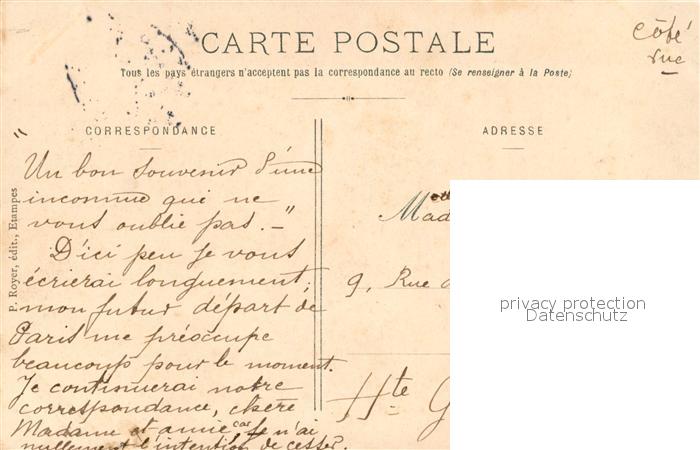 côté
rue
CARTE POSTALE
Tous les pays étrangers n'acceptent pas la correspondance au recto (Se renseigner à la Poste)
CORRESPONDANCE
ADRESSE
"Un bon souvenir d'une
inconnue qui ne
vous oublie pas.-"
D'ici peu je vous
écrierai longuement;
mon futur départ de
Paris me préoccupe
beaucoup pour le moment.
Je continuerai notre
correspondance, chère
Madame et amie car je n'ai
nullement l'intention de cesser.
P. Royer, édit., Etampes
Mad
9, Rue
Hte G
privacy protection
Datenschutz